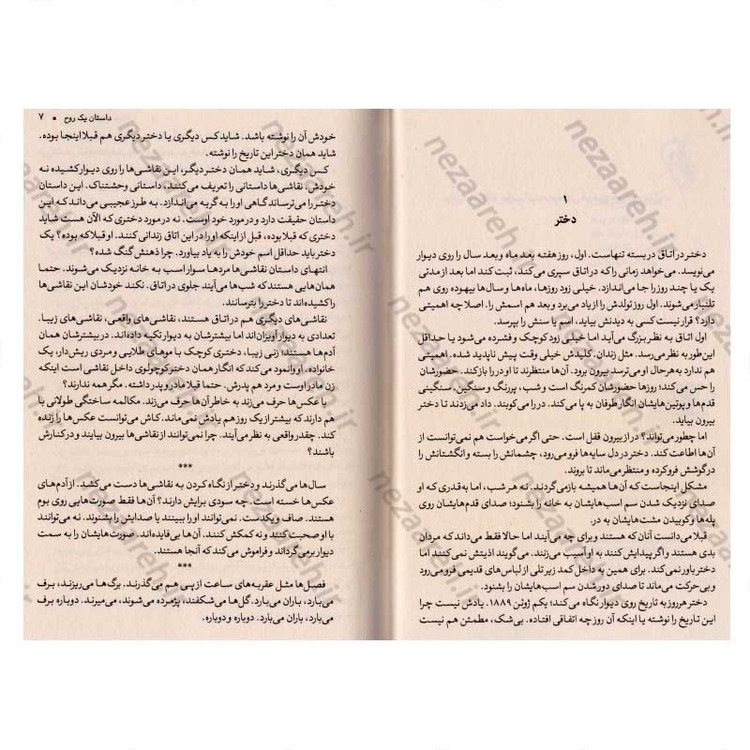 ۱
دختر
دختر در اتاق در بسته تنهاست. اول، روز هفته بعد ماه و بعد سال را روی دیوار
می‌نویسد. می‌خواهد زمانی را که در اتاق سپری می‌کند، ثبت کند اما بعد از مدتی
یک یا چند روز را جا می‌اندازد. خیلی زود روزها، ماه‌ها و سال‌ها بیهوده روی هم
تلنبار می‌شوند. اول روز تولدش را از یاد می‌برد و بعد هم اسمش را. اصلا چه اهمیتی
دارد؟ قرار نیست کسی به دیدنش بیاید، اسم یا سنش را بپرسد.
اول اتاق به نظر بزرگ می‌آید اما خیلی زود کوچک و فشرده می‌شود یا حداقل
این‌طور به نظر می‌رسد. مثل زندان. کلیدش خیلی وقت پیش ناپدید شده. اهمیتی
هم ندارد به هر حال او می‌ترسد بیرون برود. آن‌ها منتظرند تا در را باز کند. حضورشان
را حس می‌کند؛ روزها حضورشان کمرنگ است و شب، پررنگ و سنگین. سنگینی
قدم‌ها و پوتین‌هایشان انگار طوفان به پا می‌کند. در را می‌کوبند. داد می‌زدند تا دختر
بیرون بیاید.
اما چطور می‌تواند؟ در از بیرون قفل است. حتی اگر می‌خواست هم نمی‌توانست از
آن‌ها اطاعت کند. دختر در دل سایه‌ها فرو می‌رود، چشمانش را بسته و انگشتانش را
در گوشش فرو کرده و منتظر می‌ماند تا بروند.
مشکل اینجاست که آن‌ها همیشه بازمی‌گردند. نه هر شب، اما به قدری که او
صدای نزدیک شدن سم اسب‌هایشان به خانه را بشنود؛ صدای قدم‌هایشان روی
پله‌ها و کوبیدن مشت‌هایشان به در.
قبلا می‌دانست آنان که هستند و برای چه می‌آیند اما حالا فقط می‌داند که مردان
بدی هستند و اگر پیدایش کنند به او آسیب می‌زنند. می‌گویند اذیتش نمی‌کنند اما
دختر باور نمی‌کند. برای همین به داخل کمد زیر تلی از لباس‌های قدیمی فرو می‌رود
و بی‌حرکت می‌ماند تا صدای دور شدن سم اسب‌هایشان را بشنود.
دختر هر روز به تاریخ روی دیوار نگاه می‌کند؛ یکم ژوئن ۱۸۸۹. یادش نیست چرا
این تاریخ را نوشته یا اینکه آن روز چه اتفاقی افتاده. بی‌شک، مطمئن هم نیست
داستان یک روح • ۷
خودش آن را نوشته باشد. شاید کس دیگری یا دختر دیگری هم قبلا اینجا بوده.
شاید همان دختر این تاریخ را نوشته.
کس دیگری، شاید همان دختر دیگر، این نقاشی‌ها را روی دیوار کشیده نه
خودش. نقاشی‌ها داستانی را تعریف می‌کنند، داستانی وحشتناک. این داستان
دختر را می‌ترساند گاهی او را به گریه می‌اندازد. به طرز عجیبی می‌داند که این
داستان حقیقت دارد و در مورد خود اوست. نه در مورد دختری که الآن هست شاید
دختری که قبلا بوده، قبل از اینکه او را در این اتاق زندانی کنند. او قبلا که بوده؟ یک
دختر باید حداقل اسم خودش را به یاد بیاورد. چرا ذهنش گنگ شده؟
انتهای داستان نقاشی‌ها مردها سوار اسب به خانه نزدیک می‌شوند. حتما
همان‌هایی هستند که شب‌ها می‌آیند جلوی در اتاق. نکند خودشان این نقاشی‌ها
را کشیده‌اند تا دختر را بترسانند.
نقاشی‌های دیگری هم در اتاق هستند، نقاشی‌های واقعی، نقاشی‌های زیبا.
تعدادی به دیوار آویزان‌اند اما بیشترشان به دیوار تکیه داده‌اند. در بیشترشان همان
آدم‌ها هستند؛ زنی زیبا، دختری کوچک با موهای طلایی و مردی ریش‌دار، یک
خانواده. او وانمود می‌کند که انگار همان دختر کوچولوی داخل نقاشی است اینکه
زن مادر اوست و مرد هم پدرش. حتما قبلا مادر و پدر داشته. مگر همه ندارند؟
با عکس‌ها حرف می‌زند به خاطر آن‌ها حرف می‌زند. مکالمه ساختگی طولانی با
هم دارند که بیشتر از یک روز هم یادش نمی‌ماند. کاش می‌توانست عکس‌ها را زنده
کند. چقدر واقعی به نظر می‌آیند. چرا نمی‌توانند از نقاشی‌ها بیرون بیایند و در کنارش
باشند؟
***
سال‌ها می‌گذرند و دختر از نگاه کردن به نقاشی‌ها دست می‌کشد. از آدم‌های
عکس‌ها خسته است. چه سودی برایش دارند؟ آن‌ها فقط صورت‌هایی روی بوم
هستند. صاف و یکدست. نمی‌توانند او را ببینند یا صدایش را بشنوند. نه می‌توانند
با او صحبت کنند و نه کمکش کنند. آن‌ها بی‌فایده‌اند. صورت‌هایشان را به سمت
دیوار برمی‌گرداند و فراموش می‌کند که آنجا هستند.
***
فصل‌ها مثل عقربه‌های ساعت از پی هم می‌گذرند. برگ‌ها می‌ریزند، برف
می‌بارد، باران می‌بارد. گل‌ها می‌شکفند، پژمرده می‌شوند، می‌میرند. دوباره برف
می‌بارد، باران می‌بارد. دوباره و دوباره.
nezaareh.ir